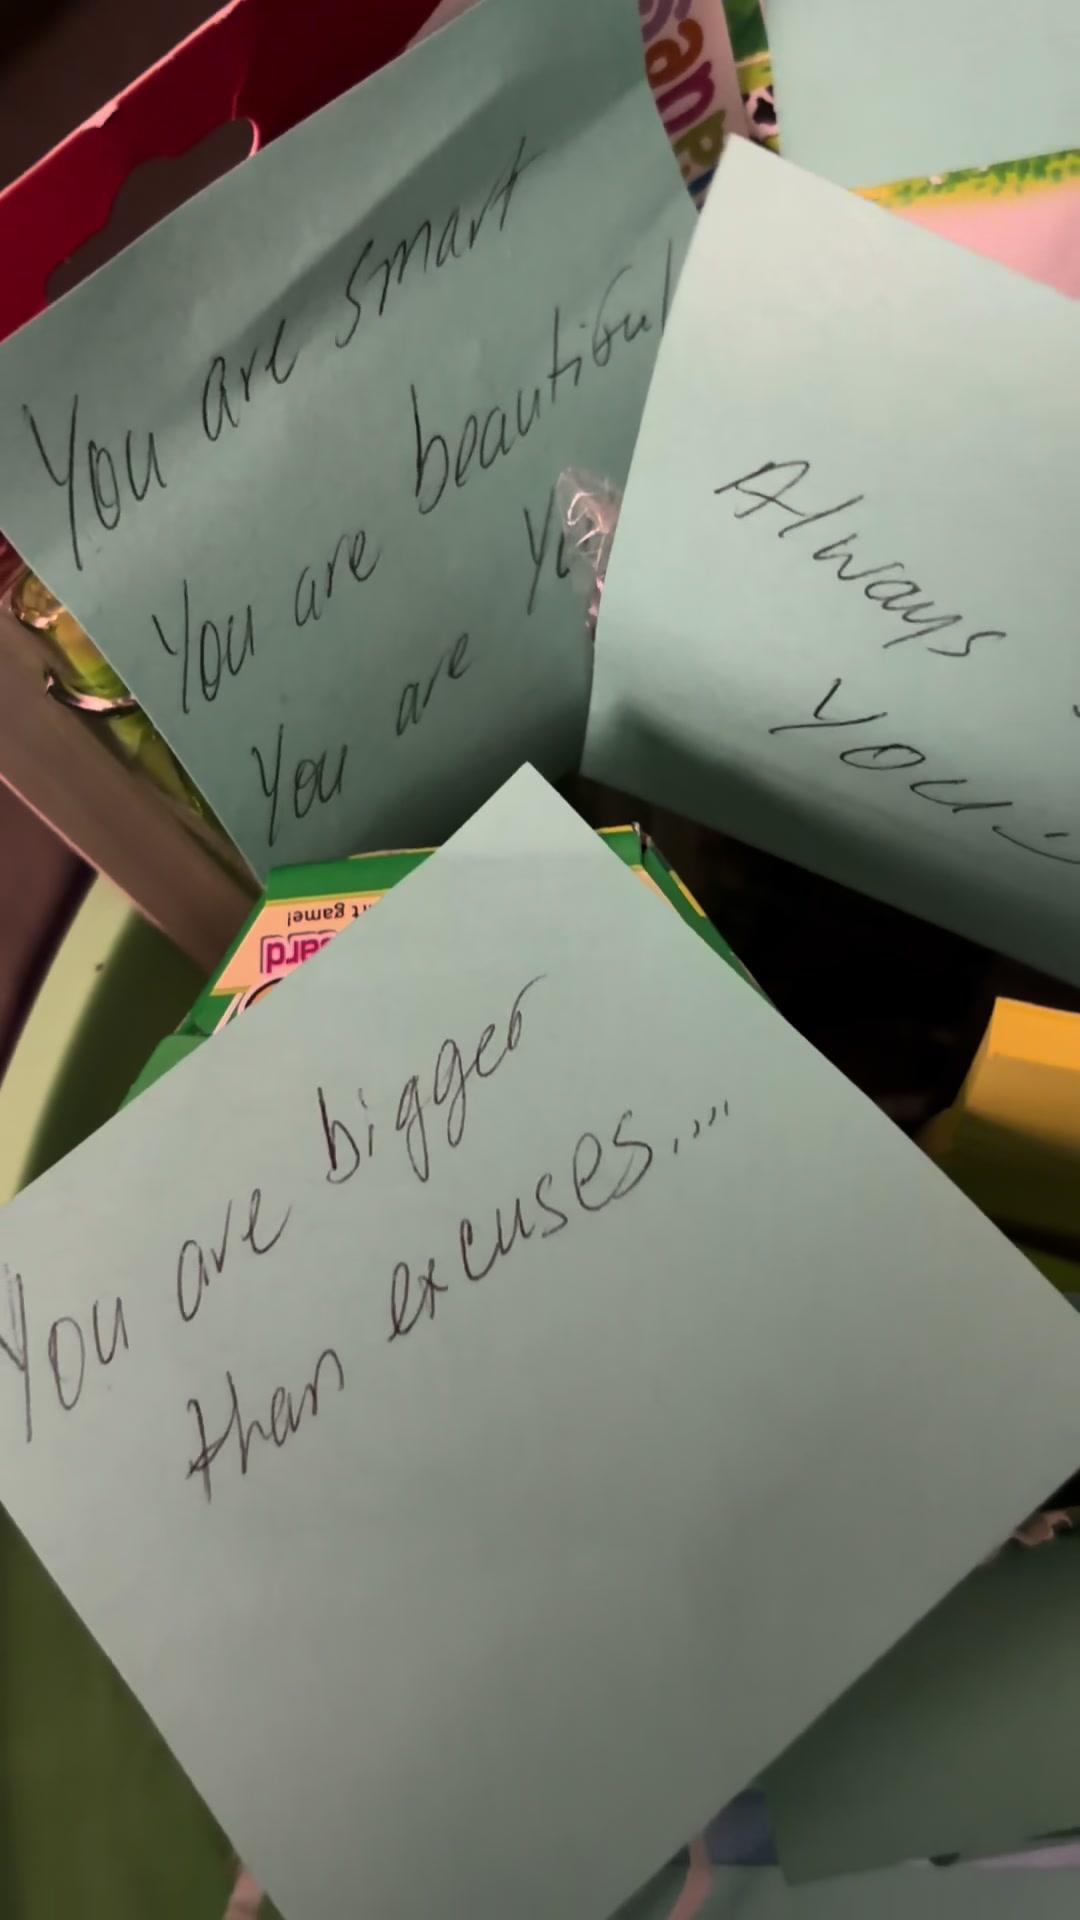 You are smart
You are beautiful
You are
Always
you
You are bigger
than excuses....
t game!